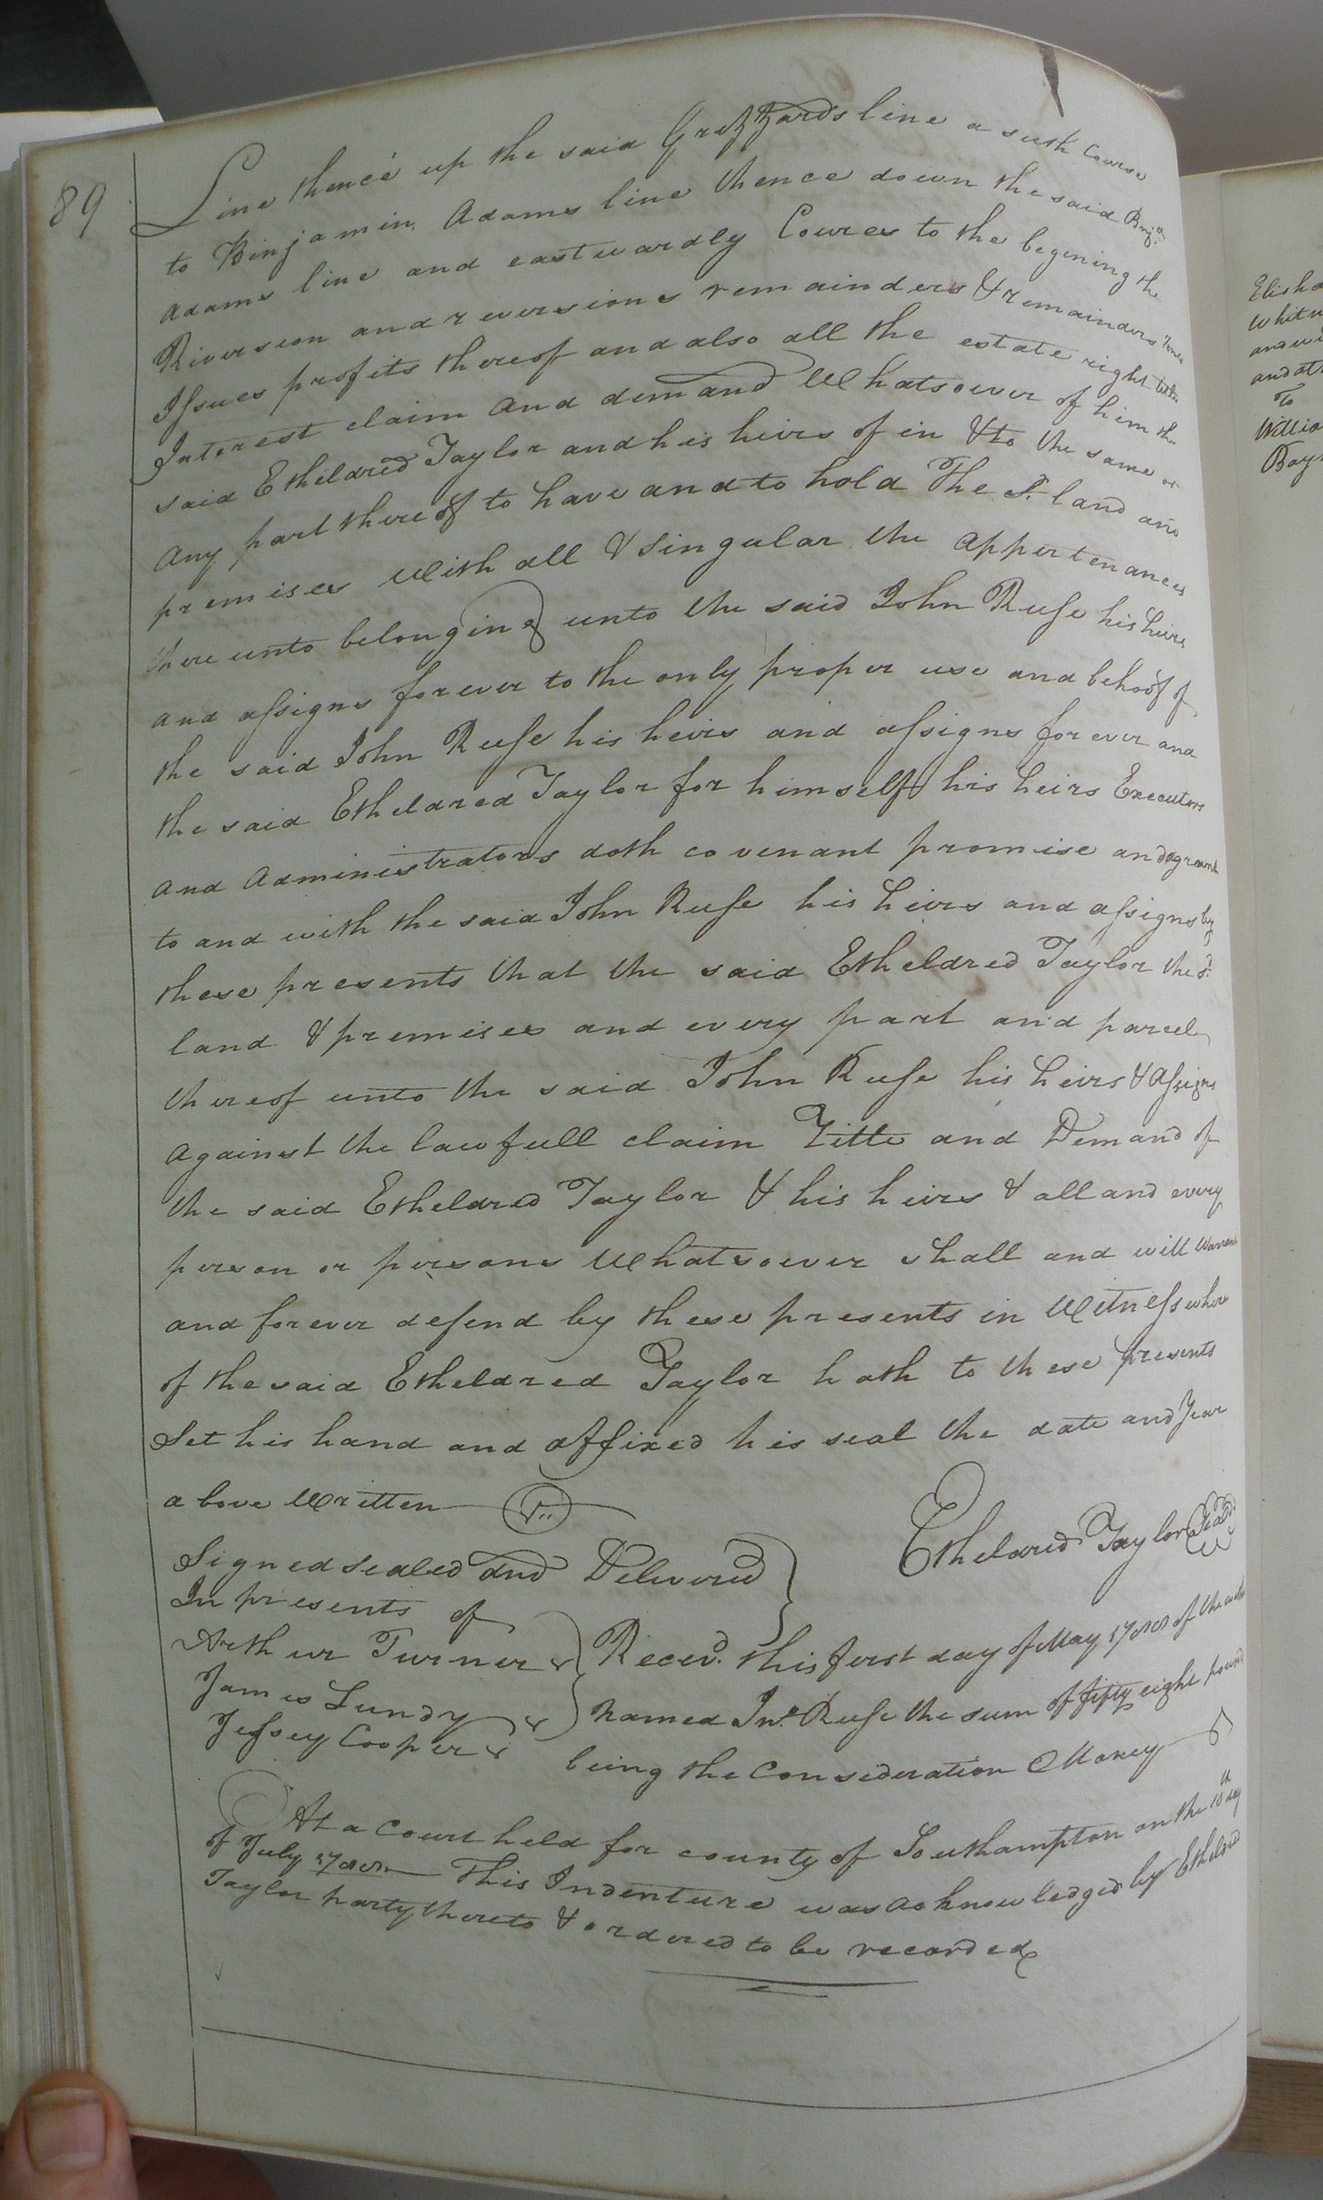 89
Line thence up the said Grizzards line a suth Course
to Binjamin Adams line thence down the said Benj.n
Adams line and eastwardly Cources to the begining the
Riversion and reversions remainders & remainders
Issues profits thereof and also all the estate right title
Interest claim and demand Whatsoever of him the
said Etheldred Taylor and his heirs of in & to the same or
any part thereof to have and to hold The Sd. land and
premises With all & singular the appertenances
there unto belonging unto the said John Ruse his heirs
and assigns forever to the only proper use and behoof of
the said John Ruse his heirs and assigns forever and
the said Etheldred Taylor for himself his heirs Executors
and Administrators doth covenant promise and
to and with the said John Ruse his heirs and assigns by
these presents that the said Etheldred Taylor the sd.
land & premises and every part and parcel
thereof unto the said John Ruse his heirs & Assigns
against the lawfull claim Title and Demand of
the said Etheldred Taylor & his heirs & all and every
person or persons Whatsoever shall and will Warrant
and forever defend by these presents in Witness where
of the said Etheldred Taylor hath to these presents
Set his hand and affixed his seal the date and Year
above Written
Etheldred Taylor Seal
Signed sealed and Delivered
In presents of
Arthur Turner
James Lundy
Jessey Cooper
Receivd. this first day of May 1788 of the within
named Jno. Ruse the sum of fifty eight pound
being the Consideration Money
At a Court held for county of Southampton on the 10th day
of July 1788 This Indenture was acknowledged by Etheldred
Taylor party thereto & ordered to be recorded
Elisha
and
To